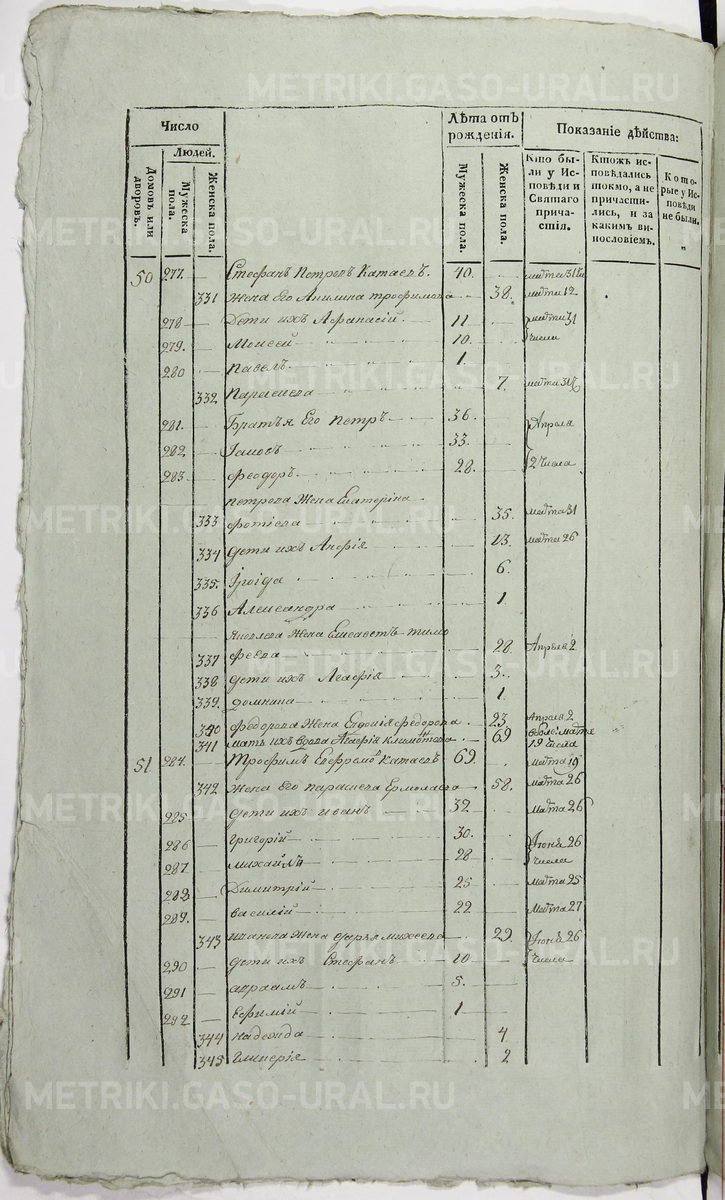 METRIKI.GASO-URAL.RU
Число
Людей.
Домовъ или дворовъ.
Мужеска пола.
Женска пола.
Лѣта отъ рожденія.
Мужеска пола.
Женска пола.
Показаніе дѣйства:
Кто были у Исповѣди и Святаго причастія.
Ктожъ исповѣдались токмо, а не причастились, и за какимъ винословіемъ.
Которые у Исповѣди не были.
50 277. Стефанъ Петровъ Катаевъ. 40. марта 31
331 жена Его Акилина трофимова 38. марта 12
278 Дети ихъ Афанасій 11 марта 31
279. Моисей 10. числа
280 Павелъ 1
332 Параскева 7. марта 31
281. Братья Его Петръ 36. Апреля
282. Іаковъ 33.
283. феодоръ 28. 2 числа
петрова Жена Екатерина
333 фотіева 35. марта 31
334 дети ихъ 13. марта 26
335. Іроіда 6.
336 Александра 1.
Яковлева Жена Елисаветъ тимо
337 феева 28 Апреля 2
338 дети ихъ Агафія 3.
339 домнина 1
340 федорова Жена Евдокія федорова 23 Апреля 2
341 мать ихъ вдова Агафія 69 19 числа
51 284. Трофимъ Катаевъ 69. марта 19
342 жена Его параскева Ермолаева 58. марта 26
285 дети ихъ иванъ 32. марта 26
286 григорій 30. Іюня 26
287 михайла 28 числа
288 Димитрій 25 марта 25
289. василій 22 Марта 27
343 иванова жена дарья михеева 29. Іюня 26
290 дети ихъ Стефанъ 10 числа
291 авраамъ 5.
292 Ефимій 1
344 надежда 4
345 Гликерія 2